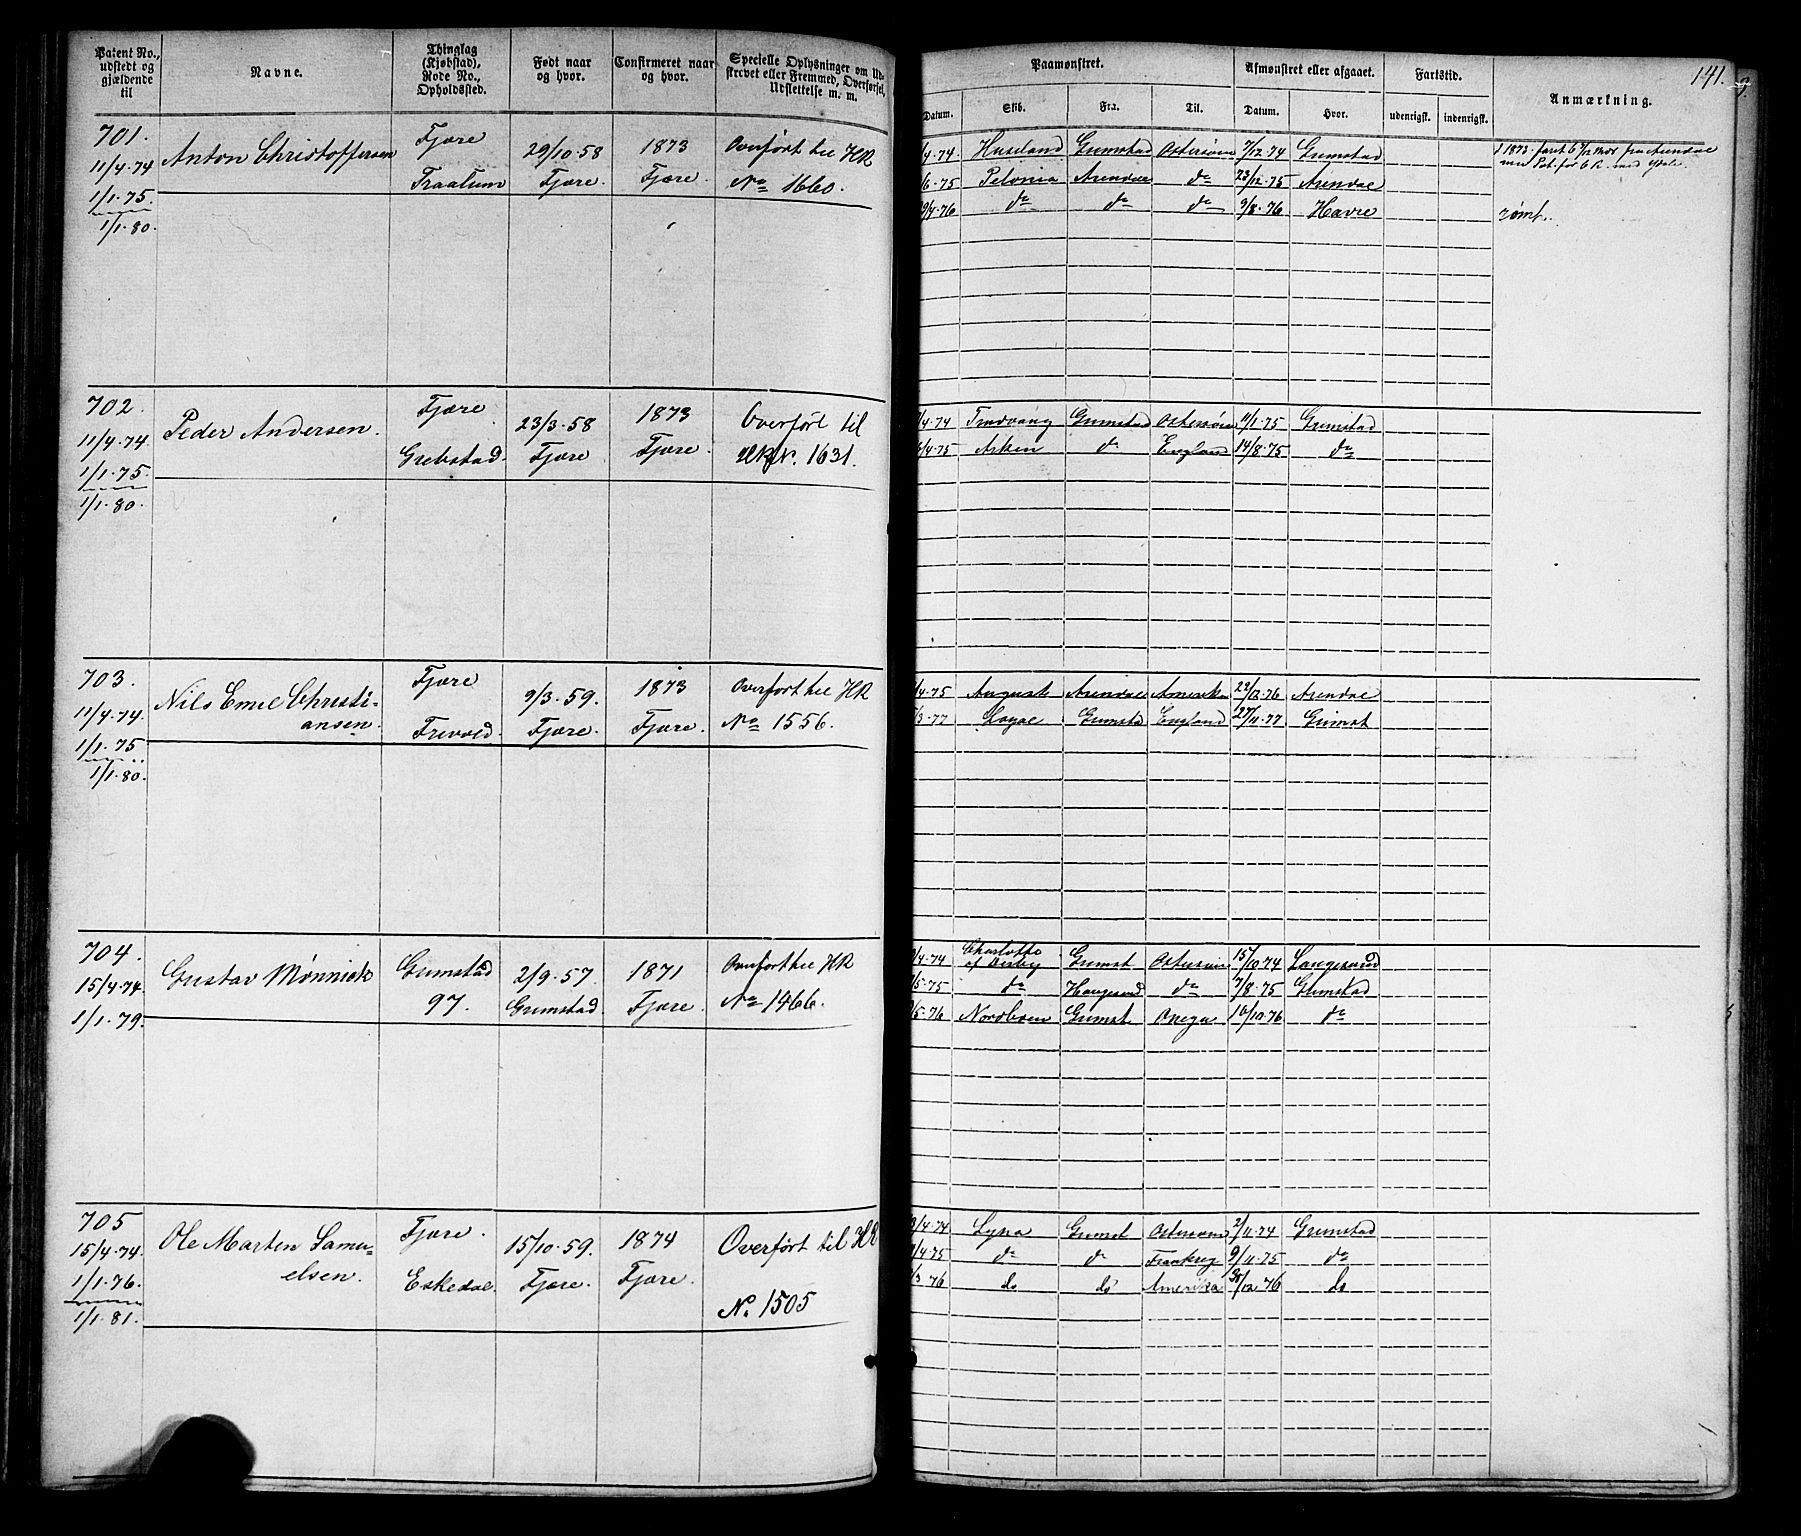 Patent No., udstedt og gjældende til
Navne.
Thinglag (Kjøbstad), Rode No., Opholdssted.
Født naar og hvor.
Confirmeret naar og hvor.
Specielle Oplysninger om Udskrevet eller Fremmed, Overførsel, Udslettelse m. m.
Paamønstret.
Afmønstret eller afgaaet.
Fartstid.
Anmærkning.
141.
Datum. Skib. Fra. Til. Datum. Hvor. udenrigsk. indenrigsk.
701. Anton Christoffersen Fjære 29/10-58 1873 Overført til HR
11/4-74 Fjære. Fjære. No 1660.
1/1-75.
1/1-80.
4-74. Huseland Grimstad Østersøen 7/12-74 Grimstad
6-75 Arendal do 23/12-75 Arendal
9/4-76 do do do 9/8-76 Havre rømt.
702. Peder Andersen. Fjære 23/3-58 1873 Overført til
11/4-74. Grebstad. Fjære Fjære. 1631.
1/1-75
1/1-80.
4-74 Grimstad Østersøen 11/1-75 Grimstad
4-75 Asken do England 14/8-75 do
703. Nils Emil Christi- Fjære 9/3-59. 1873 Overført til HR
11/4-74. ansen. Frivold. Fjære. Fjære. No 1556.
1/1-75
1/1-80.
4-75 August Arendal Amerika 29/12-76 Arendal
3-77 England 27/11-77 Grimst
704. Gustav Mønnick Grimstad 2/9-57. 1871 Overført til HR
15/4-74. 97. Grimstad Fjære. No 1466.
1/1-79.
4-74 Charlotte Grimst Østersøen 15/10-74 Langesund
5-75 do Haugesund do 7/8-75 Grimstad
5-76 Grimst Onega 16/10-76 do
705 Ole Marten Samu- Fjære. 15/10-59. 1874 Overført til HR
15/4-74. elsen. Eskedal. Fjære. Fjære. No. 1505
1/1-76.
1/1-81.
4-74 Grimst Østersøen 2/11-74 Grimstad
4-75 do do Frankrig 9/11-75 do
3-76 do do Amerika 30/12-76 do